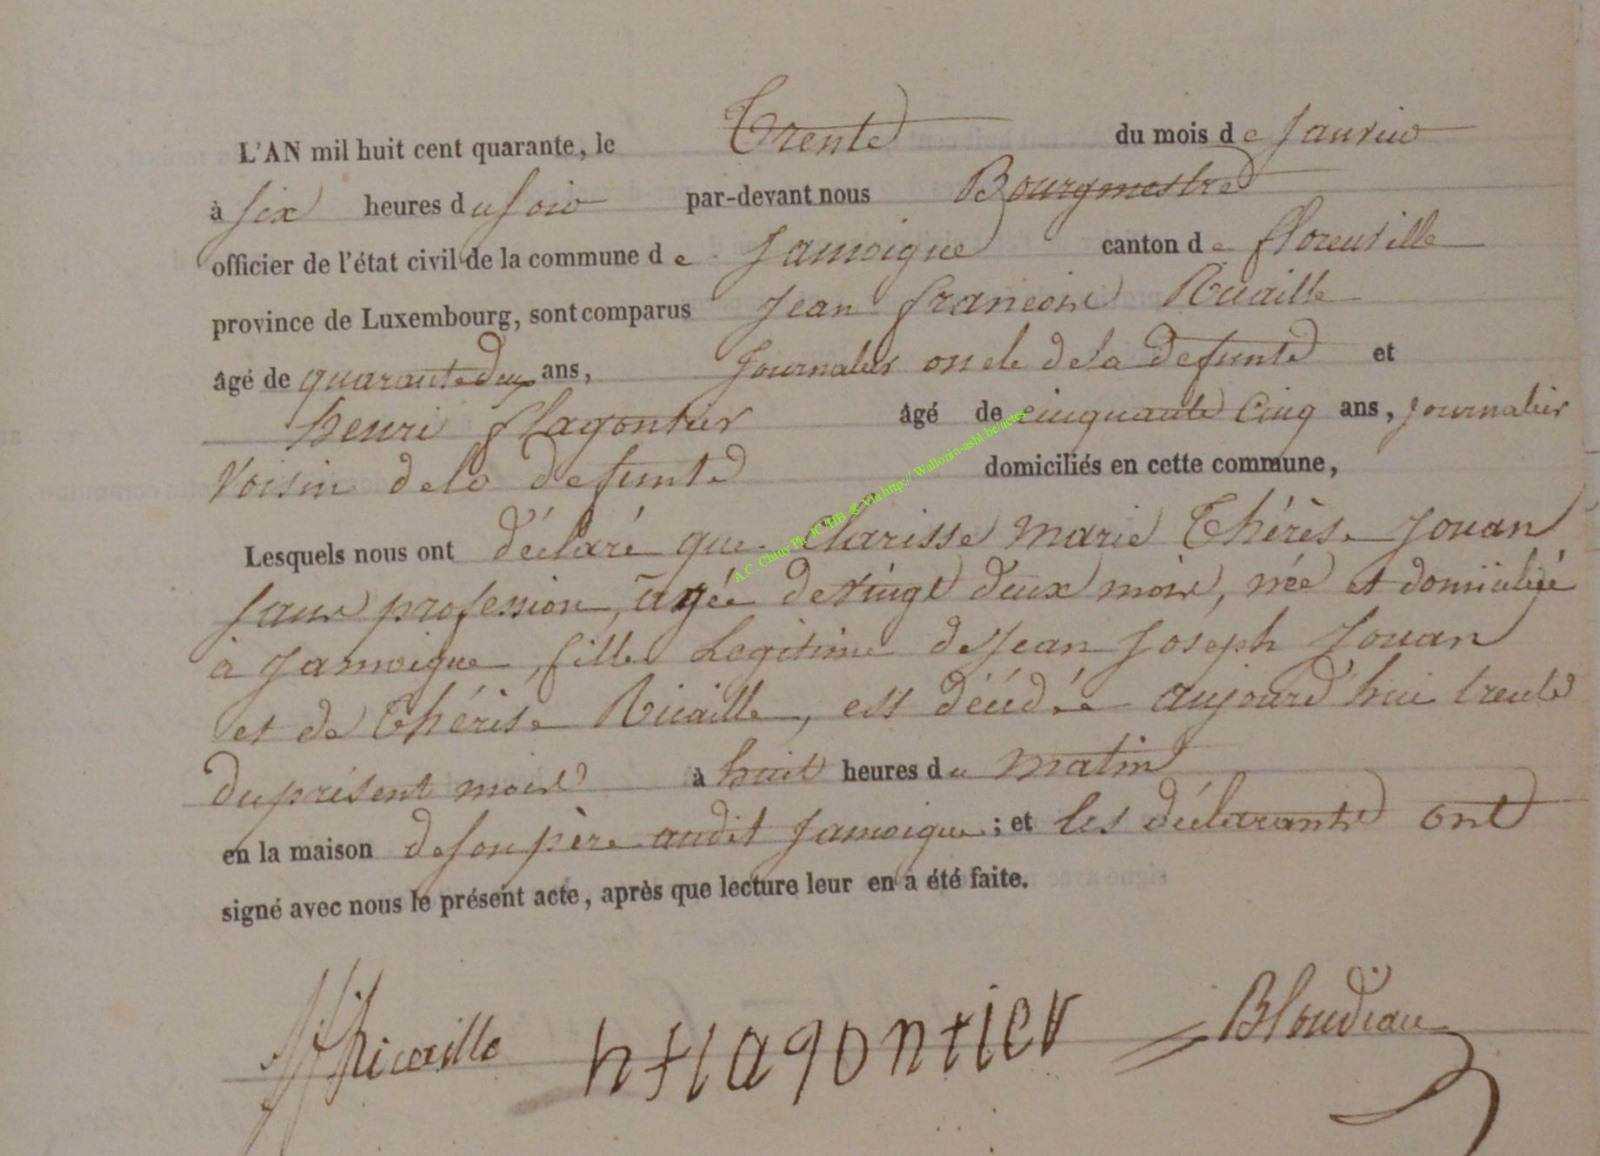 L'AN mil huit cent quarante, le Trente du mois de Janvier
à six heures du soir par-devant nous Bourgmestre
officier de l'état civil de la commune de Jamoigne canton de florenville
province de Luxembourg, sont comparus Jean françois Ricaille
âgé de quarante deux ans, Journalier oncle de la defunte et
henri flagontier âgé de cinquante cinq ans, journalier
Voisin de la defunte domiciliés en cette commune,
Lesquels nous ont déclaré que Clarisse Marie Thérèse Jouan
sans profession, agée de vingt deux mois, née et domiciliée
à Jamoigne, fille Legitime de Jean Joseph Jouan
et de Thérèse Ricaille, est décédée aujourd'hui trente
du présent mois à huit heures du matin
en la maison de son père audit Jamoigne ; et les déclarants ont
signé avec nous le présent acte, après que lecture leur en a été faite.
Jf Ricaille hflagontier Blondeau